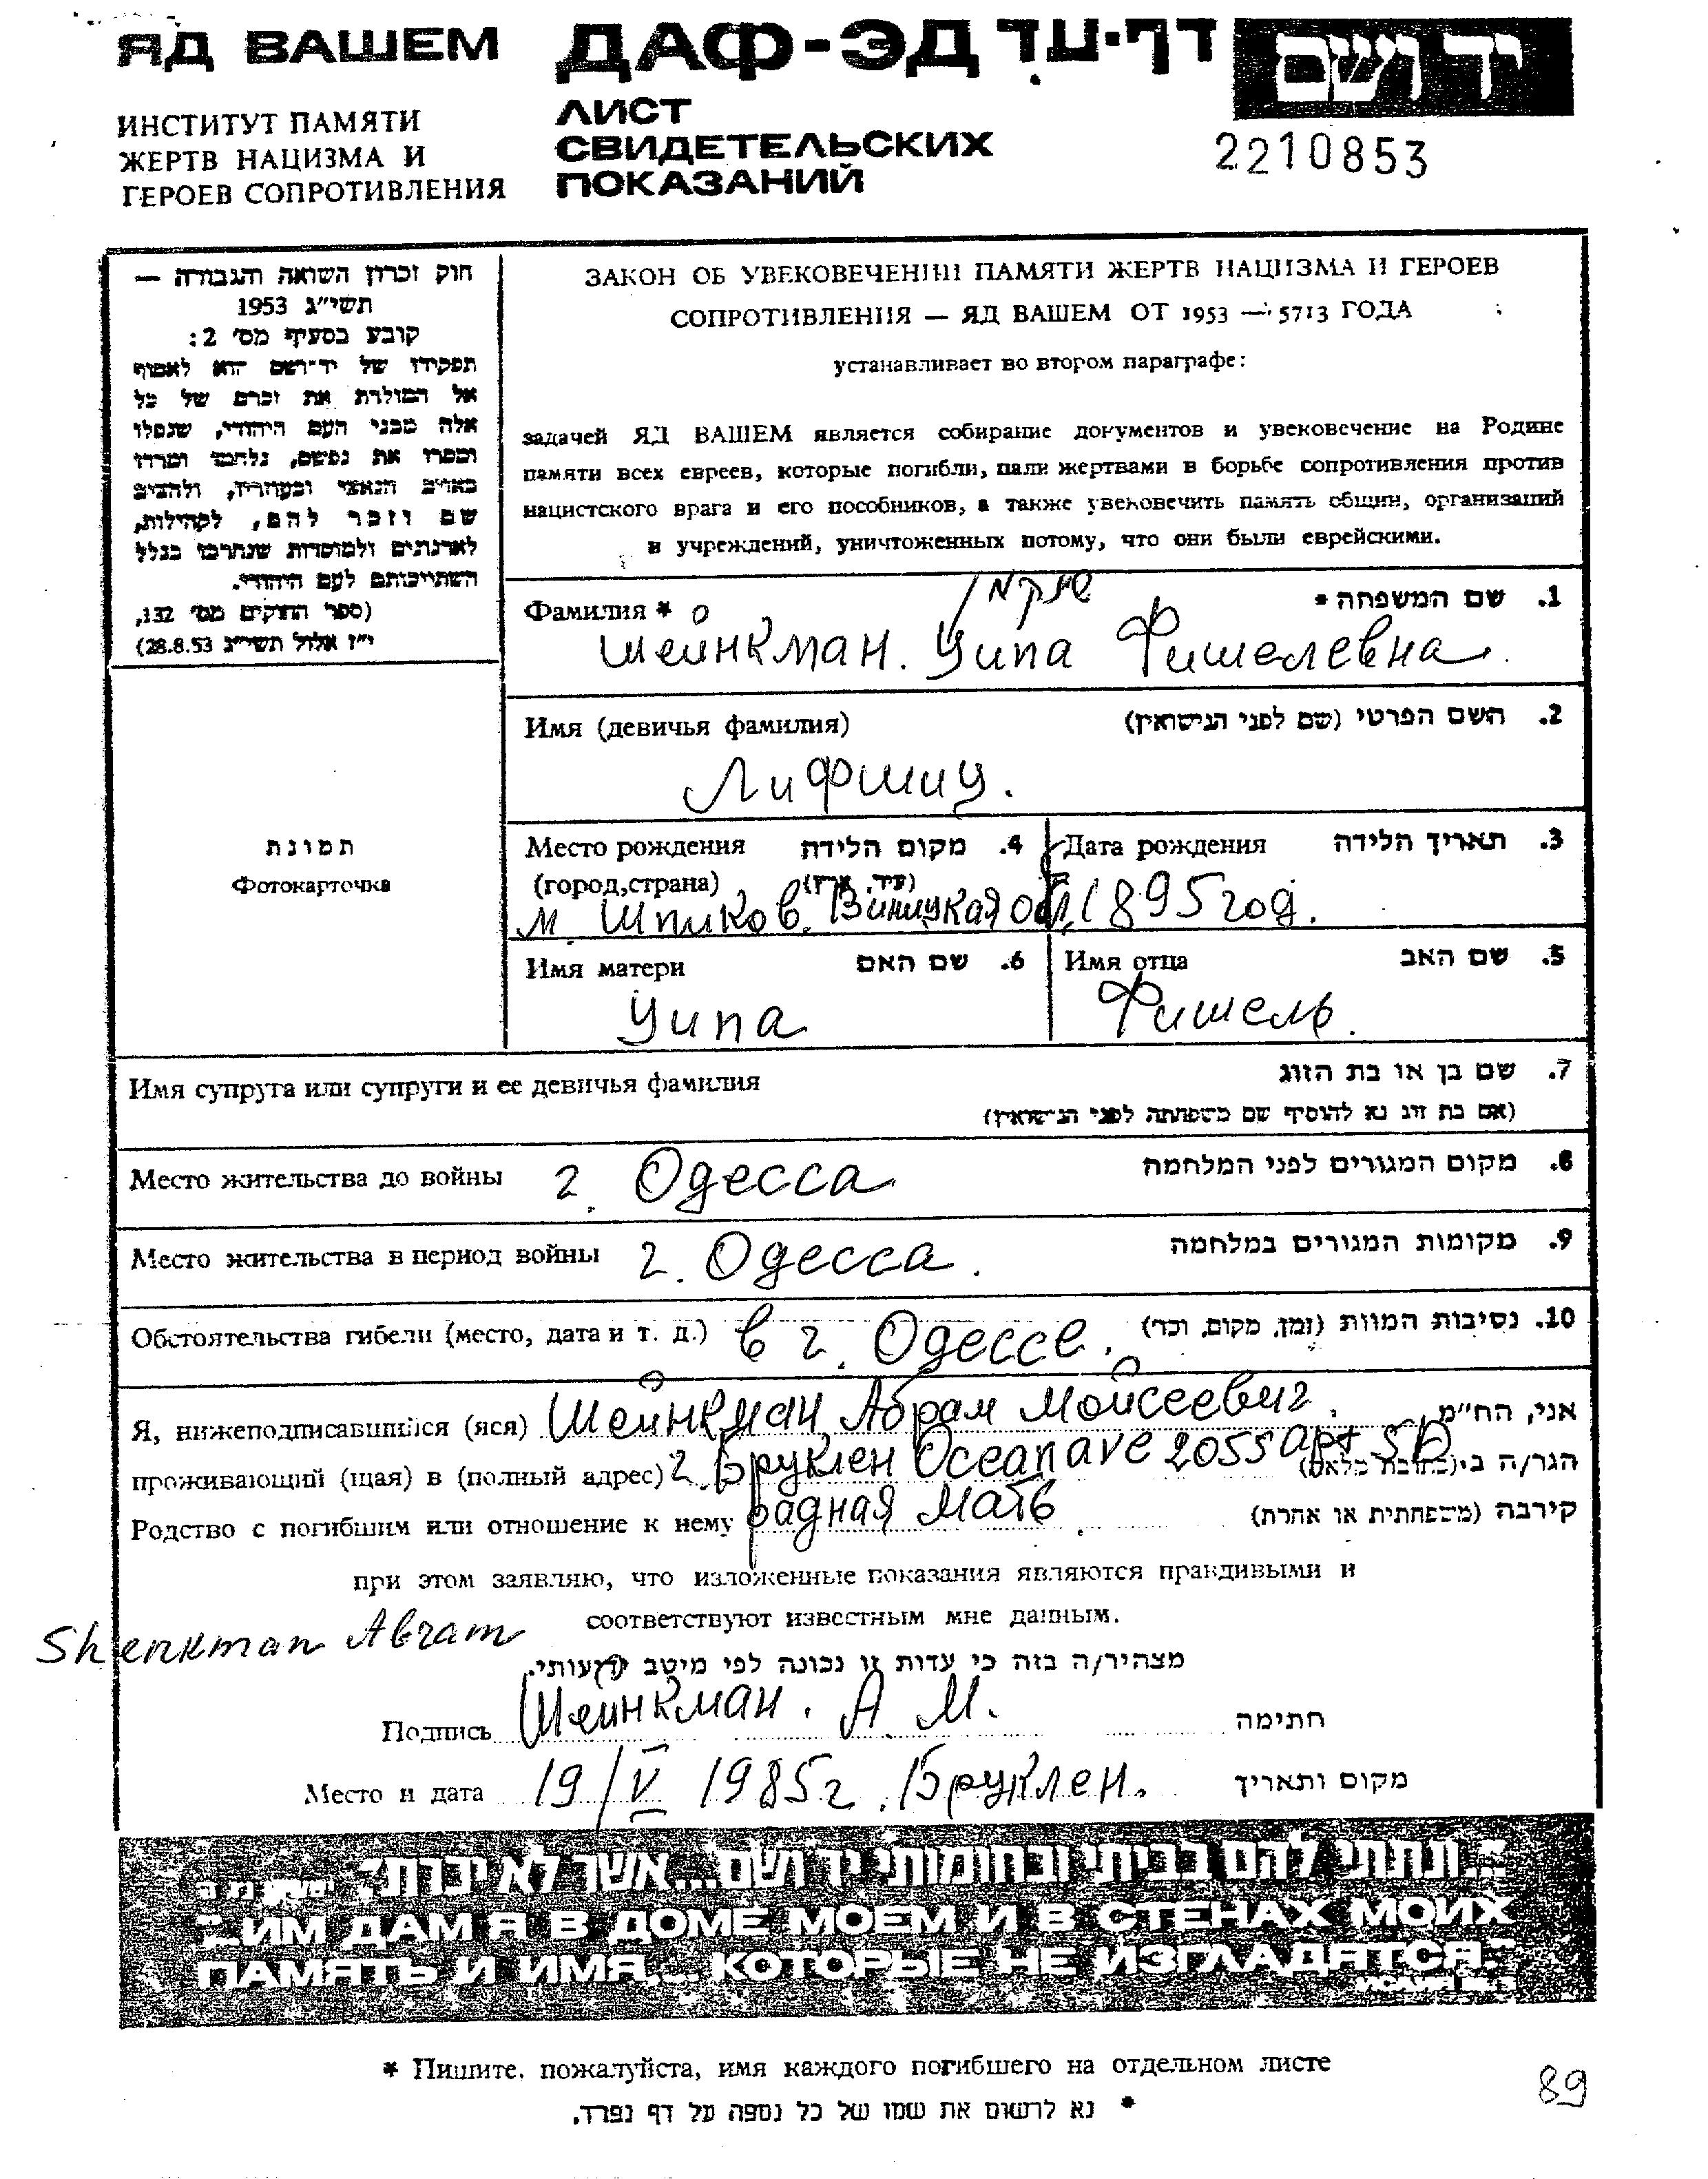 ЯД ВАШЕМ
ИНСТИТУТ ПАМЯТИ
ЖЕРТВ НАЦИЗМА И
ГЕРОЕВ СОПРОТИВЛЕНИЯ
ДАФ-ЭД דף-עד
ЛИСТ
СВИДЕТЕЛЬСКИХ
ПОКАЗАНИЙ
יד ושם
2210853
חוק זכרון השואה והגבורה —
תשי״ג 1953
קובע בסעיף מס׳ 2:
תפקידו של יד־ושם הוא לאסוף
אל המולדת את זכרם של כל
אלה מבני העם היהודי, שנפלו
ומסרו את נפשם, נלחמו ומרדו
באויב הנאצי ובעוזריו, ולהציב
שם וזכר להם, לקהילות,
לארגונים ולמוסדות שנחרבו בגלל
השתייכותם לעם היהודי.
(ספר החוקים מס׳ 132,
י״ז אלול תשי״ג 28.8.53)
ЗАКОН ОБ УВЕКОВЕЧЕНИИ ПАМЯТИ ЖЕРТВ НАЦИЗМА И ГЕРОЕВ
СОПРОТИВЛЕНИЯ — ЯД ВАШЕМ ОТ 1953 — 5713 ГОДА
устанавливает во втором параграфе:
задачей ЯД ВАШЕМ является собирание документов и увековечение на Родине
памяти всех евреев, которые погибли, пали жертвами в борьбе сопротивления против
нацистского врага и его пособников, а также увековечить память общин, организаций
и учреждений, уничтоженных потому, что они были еврейскими.
Фамилия * 1. שם המשפחה *
Шейнкман. Ципа Фишелевна.
Имя (девичья фамилия) 2. השם הפרטי (שם לפני הנישואין)
Лифшиц.
Место рождения 4. מקום הלידה
(город,страна) (עיר, ארץ)
м. Шпиков. Виницкая обл.
Дата рождения 3. תאריך הלידה
1895 год.
Имя матери 6. שם האם
Ципа
Имя отца 5. שם האב
Фишель.
Имя супруга или супруги и ее девичья фамилия 7. שם בן או בת הזוג
(אם בת זוג נא להוסיף שם משפחתה לפני הנישואין)
Место жительства до войны г. Одесса 8. מקום המגורים לפני המלחמה
Место жительства в период войны г. Одесса. 9. מקומות המגורים במלחמה
Обстоятельства гибели (место, дата и т. д.) в г. Одессе. 10. נסיבות המוות (זמן, מקום, וכו׳)
Я, нижеподписавшийся (яся) Шейнкман, Абрам Мойсеевиг. אני, הח״מ
проживающий (щая) в (полный адрес) г. Бруклен Ocean ave 2055 apt 5D הגר/ה ב- (כתובת מלאה)
Родство с погибшим или отношение к нему радная мать. קירבה (משפחתית או אחרת)
при этом заявляю, что изложенные показания являются правдивыми и
соответствуют известным мне данным.
Shenkman Abram
מצהיר/ה בזה כי עדות זו נכונה לפי מיטב ידיעותי.
Подпись Шейнкман. А. М. חתימה
Место и дата 19/V 1985г. Бруклен. מקום ותאריך
״...ונתתי להם בביתי ובחומותי יד ושם...אשר לא יכרת״
"...ИМ ДАМ Я В ДОМЕ МОЕМ И В СТЕНАХ МОИХ
ПАМЯТЬ И ИМЯ... КОТОРЫЕ НЕ ИЗГЛАДЯТСЯ."
* Пишите, пожалуйста, имя каждого погибшего на отдельном листе
* נא לרשום את שמו של כל נספה על דף נפרד.
89